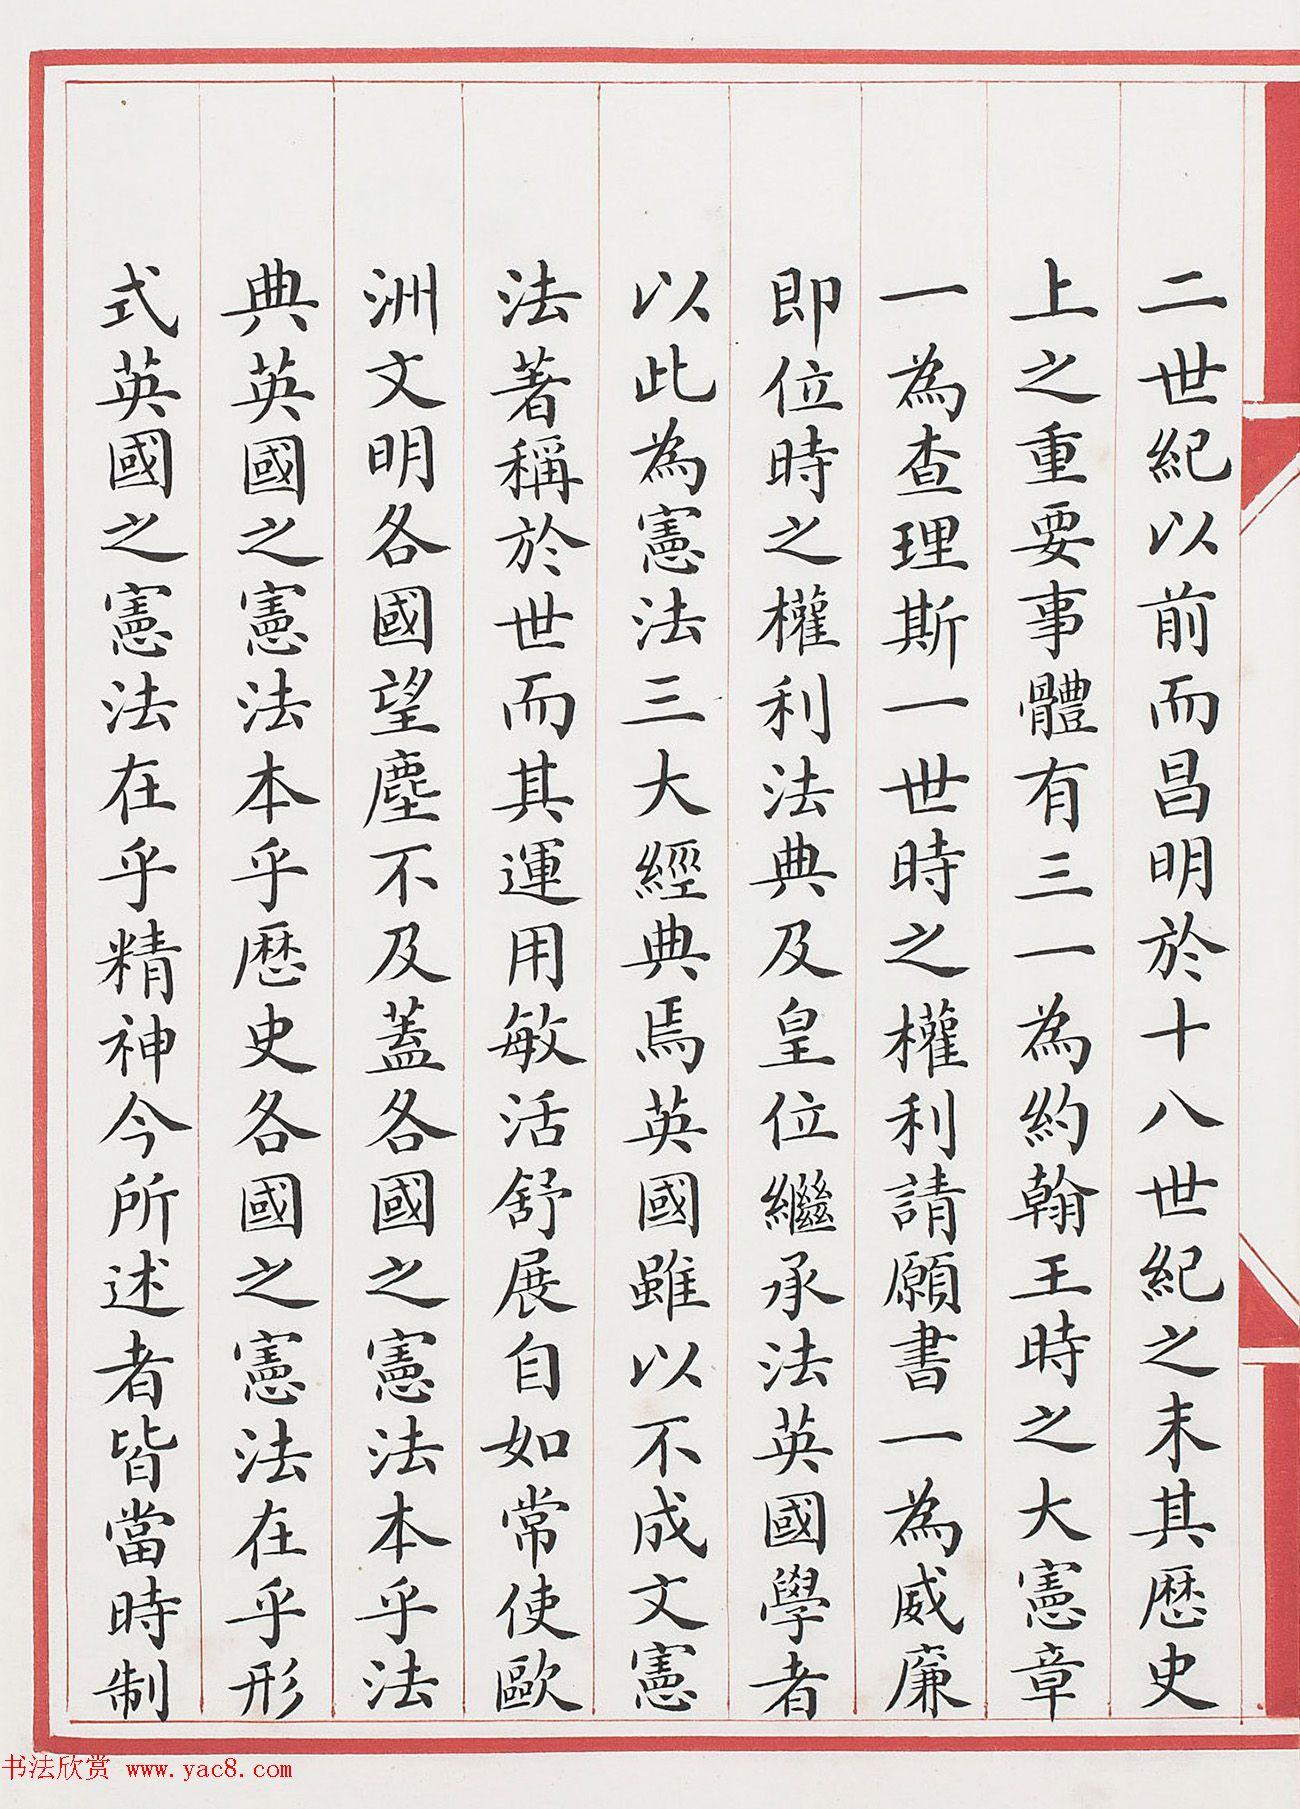 二世紀以前而昌明於十八世紀之末其歷史
上之重要事體有三一為約翰王時之大憲章
一為查理斯一世時之權利請願書一為威廉
即位時之權利法典及皇位繼承法英國學者
以此為憲法三大經典焉英國雖以不成文憲
法著稱於世而其運用敏活舒展自如常使歐
洲文明各國望塵不及蓋各國之憲法本乎法
典英國之憲法本乎歷史各國之憲法在乎形
式英國之憲法在乎精神今所述者皆當時制
书法欣赏 www.yac8.com